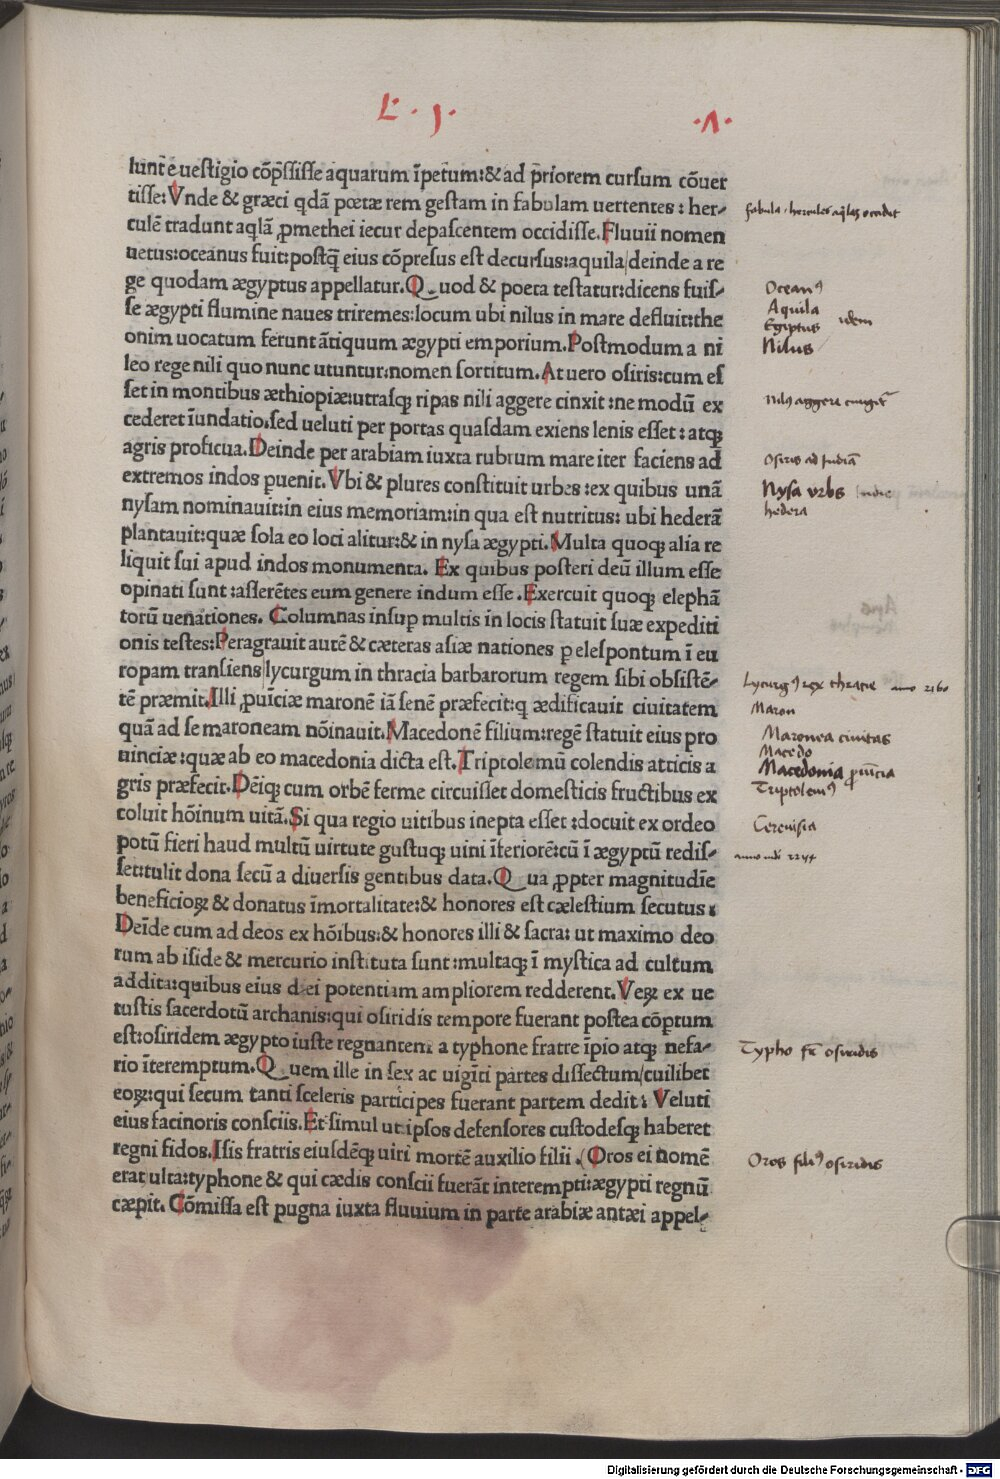 L. J.
.Λ.
lunt e uestigio cōp̄ssisse aquarum īpetum:& ad p̄riorem cursum cōuer
tisse: Vnde & græci qdā poetæ rem gestam in fabulam uertentes : her-
culē tradunt aqlā ꝓmethei iecur depascentem occidisse. Fluuii nomen
uetus:oceanus fuit:postq̄ eius cōpresus est decursus:aquila/deinde a re
ge quodam ægyptus appellatur. Quod & poeta testatur:dicens fuis-
se ægypti flumine naues triremes:locum ubi nilus in mare defluit:the
onim uocatum ferunt ātiquum ægypti emporium. Postmodum a ni
leo rege nili quo nunc utuntur:nomen sortitum. At uero osiris:cum es
set in montibus æthiopiæ:utrasqꝫ ripas nili aggere cinxit :ne modū ex
cederet īundatio.sed ueluti per portas quasdam exiens lenis esset : atqꝫ
agris proficua. Deinde per arabiam iuxta rubrum mare iter faciens ad
extremos indos ꝑuenit. Vbi & plures constituit urbes :ex quibus unā
nysam nominauit:in eius memoriam:in qua est nutritus: ubi hederā
plantauit:quæ sola eo loci alitur:& in nysa ægypti. Multa quoqꝫ alia re
liquit sui apud indos monumenta. Ex quibus posteri deū illum esse
opinati sunt :asserētes eum genere indum esse . Exercuit quoqꝫ elephā
torū uenationes. Columnas insuꝑ multis in locis statuit suæ expediti
onis testes: Peragrauit autē & cæteras asiæ nationes ꝑ elespontum ī eu
ropam transiens/lycurgum in thracia barbarorum regem sibi obsistē-
tē præmit. Illi ꝓuīciæ maronē iā senē præfecit:q ædificauit ciuitatem
quā ad se maroneam nōinauit. Macedonē filium:regē statuit eius pro
uinciæ :quæ ab eo macedonia dicta est. Triptolemū colendis atticis a
gris præfecit. Dēiqꝫ cum orbē ferme circuisset domesticis fructibus ex
coluit hōinum uitā. Si qua regio uitibus inepta esset :docuit ex ordeo
potū fieri haud multū uirtute gustuqꝫ uini īferiorē:cū ī ægyptū redis-
set:tulit dona secū a diuersis gentibus data. Qua ꝓpter magnitudīe
beneficioꝝ & donatus īmortalitate:& honores est cælestium secutus :
Deīde cum ad deos ex hōibus:& honores illi & sacra: ut maximo deo
rum ab iside & mercurio instituta sunt :multaqꝫ ī mystica ad cultum
addita:quibus eius dei potentiam ampliorem redderent. Veꝝ ex ue
tustis sacerdotū archanis:qui osiridis tempore fuerant postea cōꝑtum
est:osiridem ægypto iuste regnantem a typhone fratre īpio atqꝫ nefa-
rio īteremptum. Quem ille in sex ac uigīti partes dissectum/cuilibet
eoꝝ:qui secum tanti sceleris participes fuerant partem dedit : Veluti
eius facinoris consciis. Et simul ut ipsos defensores custodesqꝫ haberet
regni fidos. Isis fratris eiusdēqꝫ uiri mortē auxilio filii . (Oros ei nomē
erat ulta:typhone & qui cædis conscii fuerāt interempti:ægypti regnū
cæpit. Cōmissa est pugna iuxta fluuium in parte arabiæ antæi appel-
fabula . hercules aqlas occidit
Ocean⁹
Aquila
Egiptus idem
Nilus
Nily aggere
Osiris ad Indiā
Nysa vrbs Indie
hedera
Lycurg⁹ rex thracie anno 2160
Maron
Maronea ciuitas
Macedo
Macedonia ꝓuīcia
Triptolem⁹
Ceruisia
Typho fr̄ osiridis
Oros fili⁹ osiridis
Digitalisierung gefördert durch die Deutsche Forschungsgemeinschaft - DFG